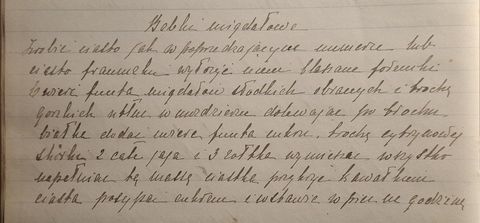 Babki migdałowe
Zrobić ciasto jak w poprzedzającym numerze lub
ciasto francuskie wyłożyć niem blaszane foremki
Ćwierć funta migdałów słodkich obranych i trochę
gorzkich utłuc w moździerzu dolewając po trochu
białka dodać ćwierć funta cukru, trochę cytrynowej
skórki 2 całe jaja i 3 żółtka wymieszać wszystko
napełniać tą masą ciastka przykryć kawałkiem
ciasta posypać cukrem i wstawić w piec na godzinę